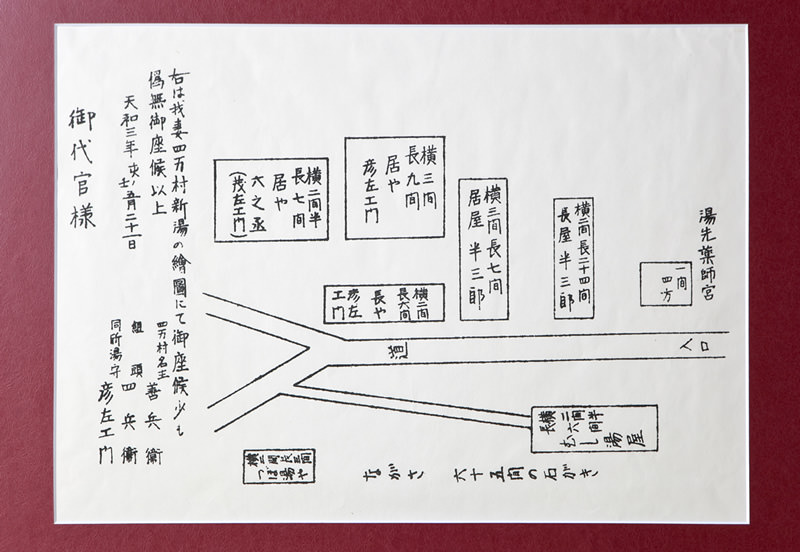 湯先薬師宮
一間
四方
入口
横二間長二十四間
長屋 半三郎
横三間 長七間
居屋 半三郎
横三間
長九間
居や
彦左エ門
横二間半
長七間
居や
六之丞
(茂左エ門)
横二間
長六間
長や
彦左
エ門
道
横二間半
長六間
むし
湯屋
ながさ 六十五間の石がき
横二間長三間
つぼ湯や
右は我妻四万村新湯の繪圖にて御座候少も
偽無御座候以上
天和三年亥壬ノ五月二十一日
四万村名主 善兵衛
組頭 四兵衛
同所湯守 彦左エ門
御代官様